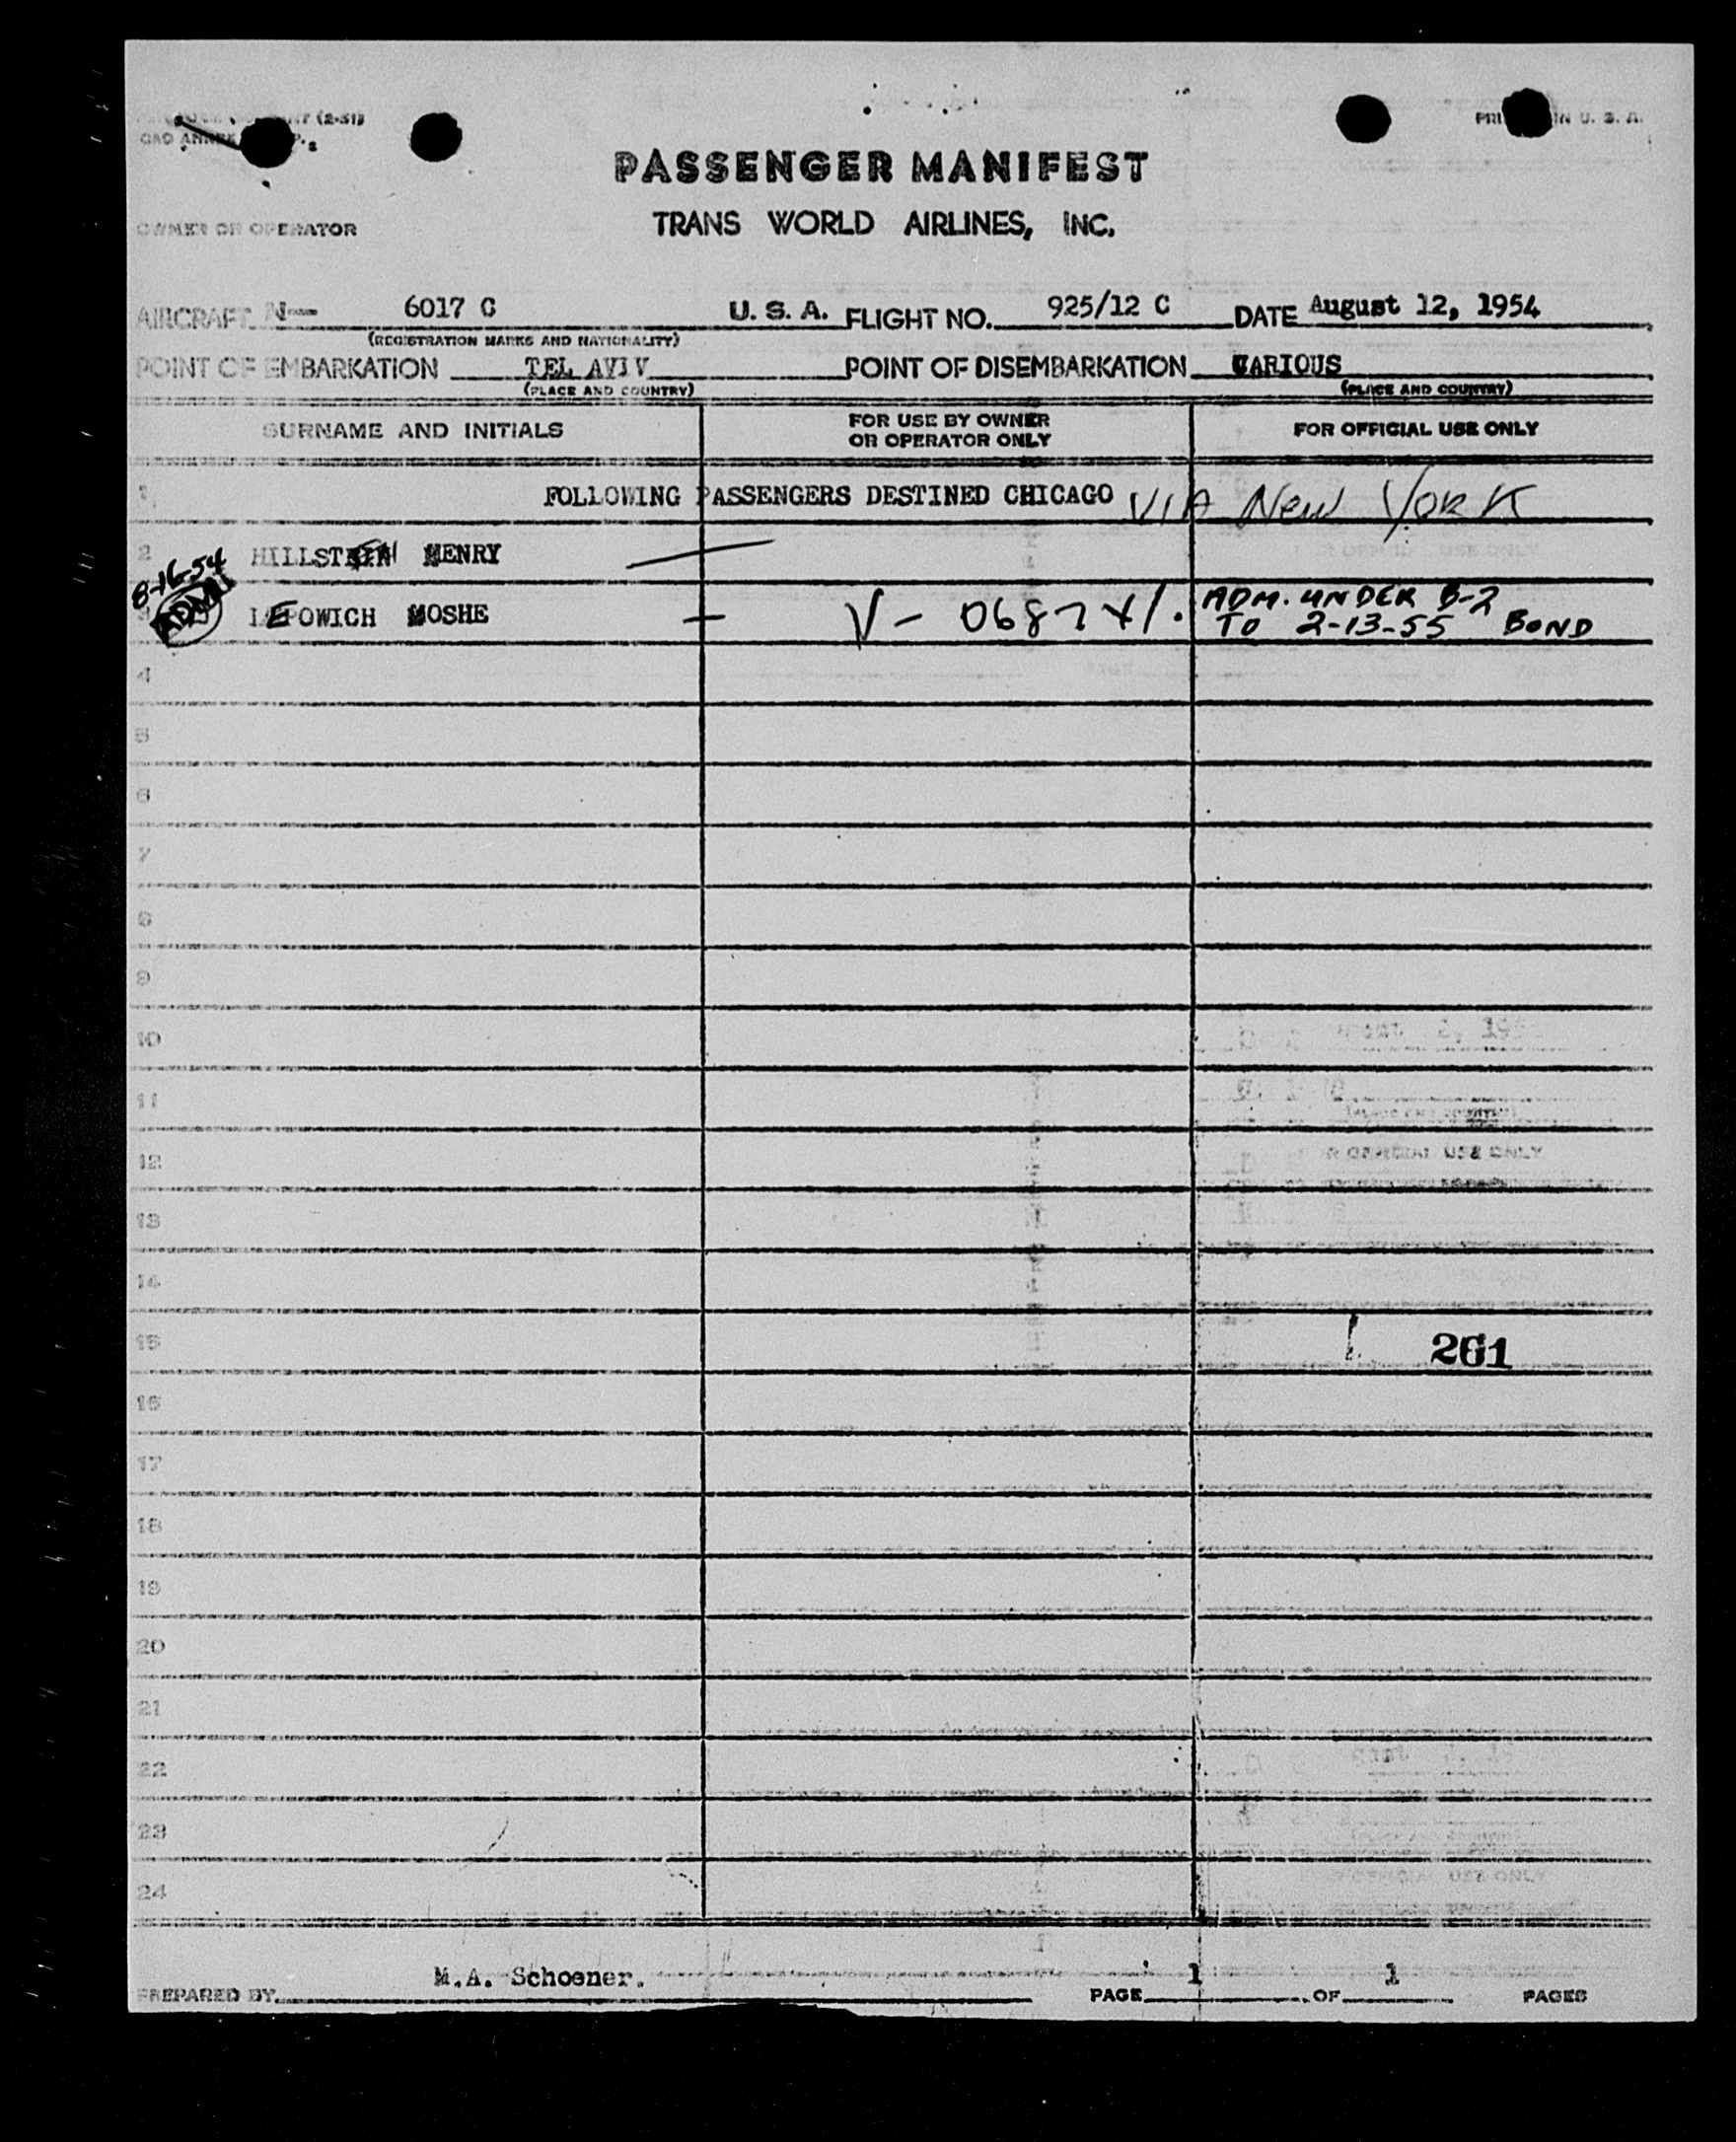 (2-51)
PRINTED IN U. S. A.
PASSENGER MANIFEST
TRANS WORLD AIRLINES, INC.
OWNER OR OPERATOR
AIRCRAFT N— 6017 C U. S. A. FLIGHT NO. 925/12 C DATE August 12, 1954
(REGISTRATION MARKS AND NATIONALITY)
POINT OF EMBARKATION TEL AVIV POINT OF DISEMBARKATION VARIOUS
(PLACE AND COUNTRY) (PLACE AND COUNTRY)
SURNAME AND INITIALS FOR USE BY OWNER OR OPERATOR ONLY FOR OFFICIAL USE ONLY
1 FOLLOWING PASSENGERS DESTINED CHICAGO VIA New YORK
2 HENRY
8-16-54
3 LEPOWICH MOSHE V - ADM. UNDER B-2
TO 2-13-55 BOND
4
5
6
7
8
9
10
11
12
13
14
15 261
16
17
18
19
20
21
22
23
24
PREPARED BY M.A. Schoener. PAGE 1 OF 1 PAGES